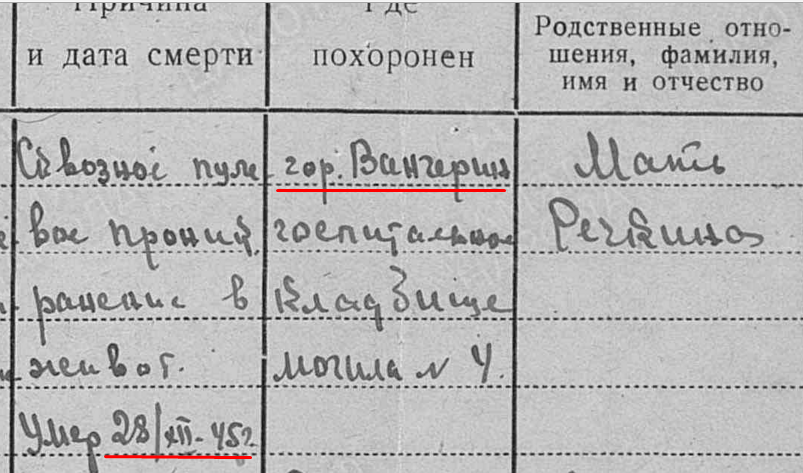 Причина
и дата смерти
Где
похоронен
Родственные отно-
шения, фамилия,
имя и отчество
Сквозное пуле-
вое прониц.
ранение в
живот.
Умер 28/XII-45г.
гор. Вангерин
госпитальное
кладбище
могила N 4.
Мать
Речкина